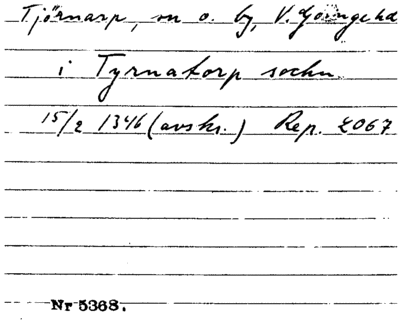 Tjörnarp, sn o. by, V. Göinge hd
i Tyrnatorp sochn
15/2 1346 (avskr.) Rep. 2067
Nr 5368.